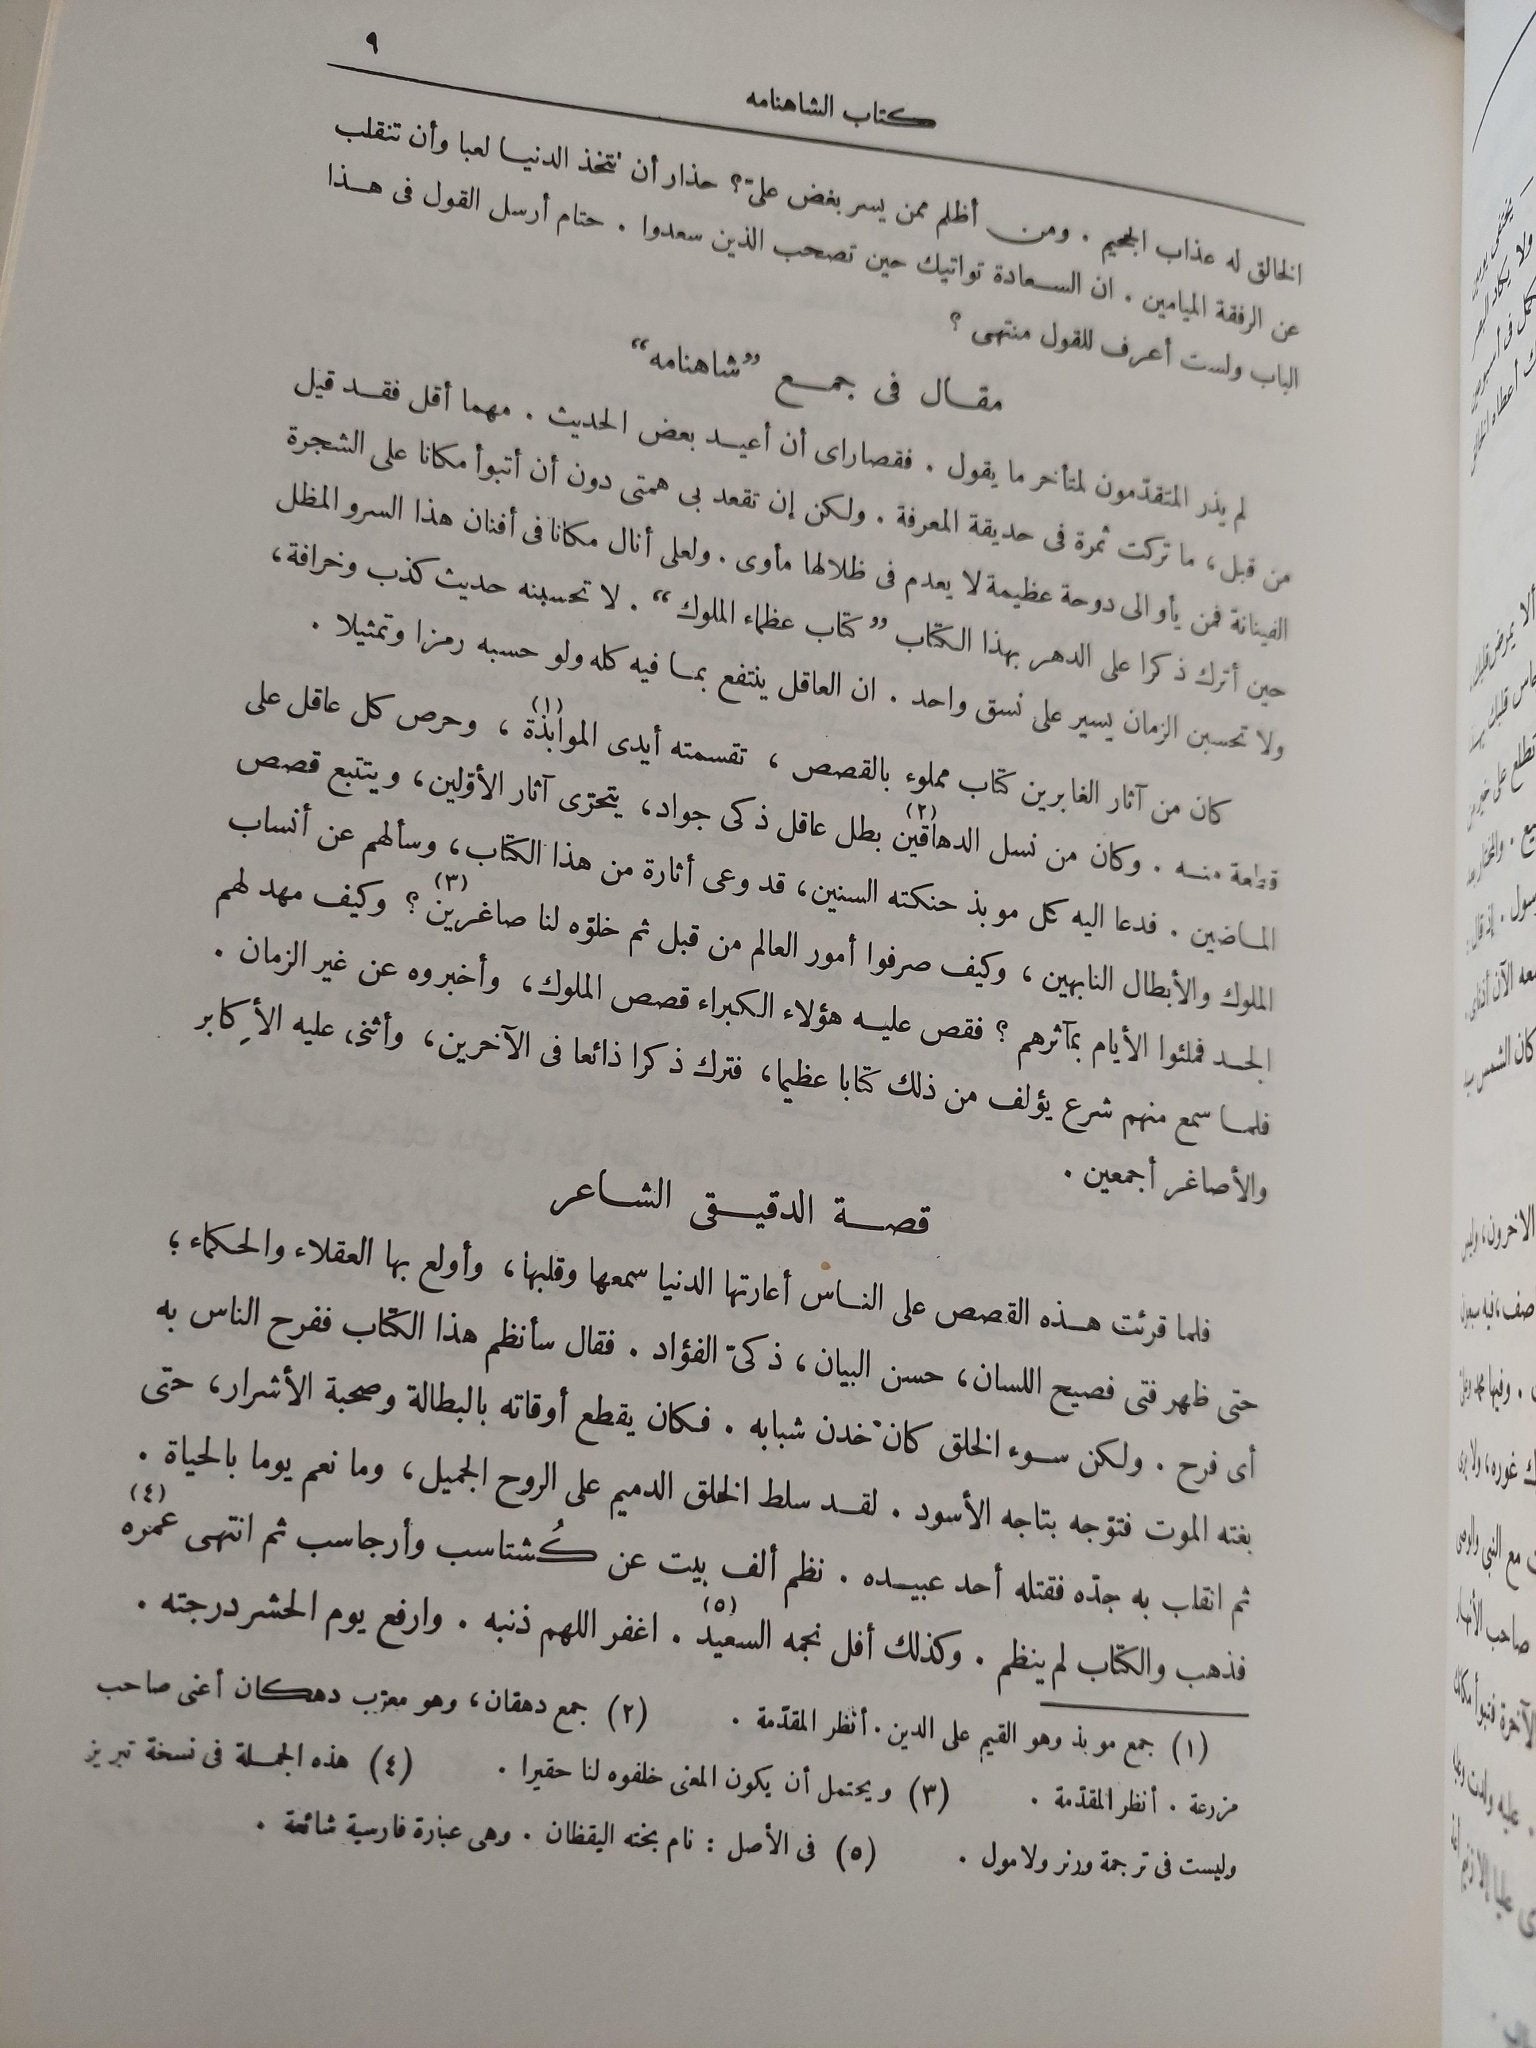 ٩
كتاب الشاهنامه
الخالق له عذاب الجحيم . ومن أظلم ممن يسر بغض علىّ؟ حذار أن تتخذ الدنيا لعبا وأن تنقلب
عن الرفقة الميامين . ان السعادة تواتيك حين تصحب الذين سعدوا . حتام أرسل القول فى هذا
الباب ولست أعرف للقول منتهى ؟
مقال فى جمع ”شاهنامه“
لم يذر المتقدّمون لمتأخر ما يقول . فقصاراى أن أعيد بعض الحديث . مهما أقل فقد قيل
من قبل، ما تركت ثمرة فى حديقة المعرفة . ولكن إن تقعد بى همتى دون أن أتبوأ مكانا على الشجرة
الفينانة فمن يأو الى دوحة عظيمة لا يعدم فى ظلالها مأوى . ولعلى أنال مكانا فى أفنان هذا السرو المظل
حين أترك ذكرا على الدهر بهذا الكتاب ”كتاب عظماء الملوك“ . لا تحسبنه حديث كذب وخرافة،
ولا تحسبن الزمان يسير على نسق واحد . ان العاقل ينتفع بما فيه كله ولو حسبه رمزا وتمثيلا .
كان من آثار الغابرين كتاب مملوء بالقصص ، تقسمته أيدى الموابذة(١) ، وحرص كل عاقل على
قطعة منه . وكان من نسل الدهاقين(٢) بطل عاقل ذكى جواد، يتحرّى آثار الأوّلين، ويتتبع قصص
الماضين . فدعا اليه كل موبذ حنكته السنين، قد وعى أثارة من هذا الكتاب، وسألهم عن أنساب
الملوك والأبطال النابهين ، وكيف صرفوا أمور العالم من قبل ثم خلوّه لنا صاغرين(٣) ؟ وكيف مهد لهم
الجد فملئوا الأيام بمآثرهم ؟ فقص عليه هؤلاء الكبراء قصص الملوك، وأخبروه عن غير الزمان .
فلما سمع منهم شرع يؤلف من ذلك كتابا عظيما، فترك ذكرا ذائعا فى الآخرين، وأثنى عليه الأكابر
والأصاغر أجمعين .
قصة الدقيقى الشاعر
فلما قرئت هذه القصص على الناس أعارتها الدنيا سمعها وقلبها، وأولع بها العقلاء والحكماء ؛
حتى ظهر فتى فصيح اللسان، حسن البيان، ذكىّ الفؤاد . فقال سأنظم هذا الكتاب ففرح الناس به
أى فرح . ولكن سوء الخلق كان خدن شبابه . فكان يقطع أوقاته بالبطالة وصحبة الأشرار، حتى
بغته الموت فتوّجه بتاجه الأسود . لقد سلط الخلق الدميم على الروح الجميل، وما نعم يوما بالحياة .
ثم انقلب به جدّه فقتله أحد عبيده . نظم ألف بيت عن كُشتاسب وأرجاسب ثم انتهى عمره(٤)
فذهب والكتاب لم ينظم . وكذلك أفل نجمه السعيد(٥) . اغفر اللهم ذنبه . وارفع يوم الحشر درجته .
(١) جمع موبذ وهو القيم على الدين . أنظر المقدّمة . (٢) جمع دهقان، وهو معرّب دهكان أعنى صاحب
مزرعة . أنظر المقدّمة . (٣) ويحتمل أن يكون المعنى خلفوه لنا حقيرا . (٤) هذه الجملة فى نسخة تبريز
وليست فى ترجمة ورنر ولا مول . (٥) فى الأصل : نام بخته اليقظان . وهى عبارة فارسية شائعة .